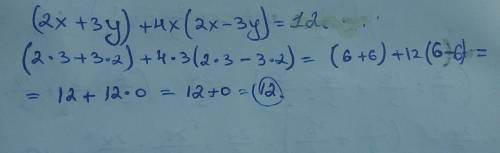 (2x+3y)+4x(2x-3y)=12.
(2·3+3·2)+4·3(2·3-3·2)= (6+6)+12(6-6)=
= 12+12·0 = 12+0=12.